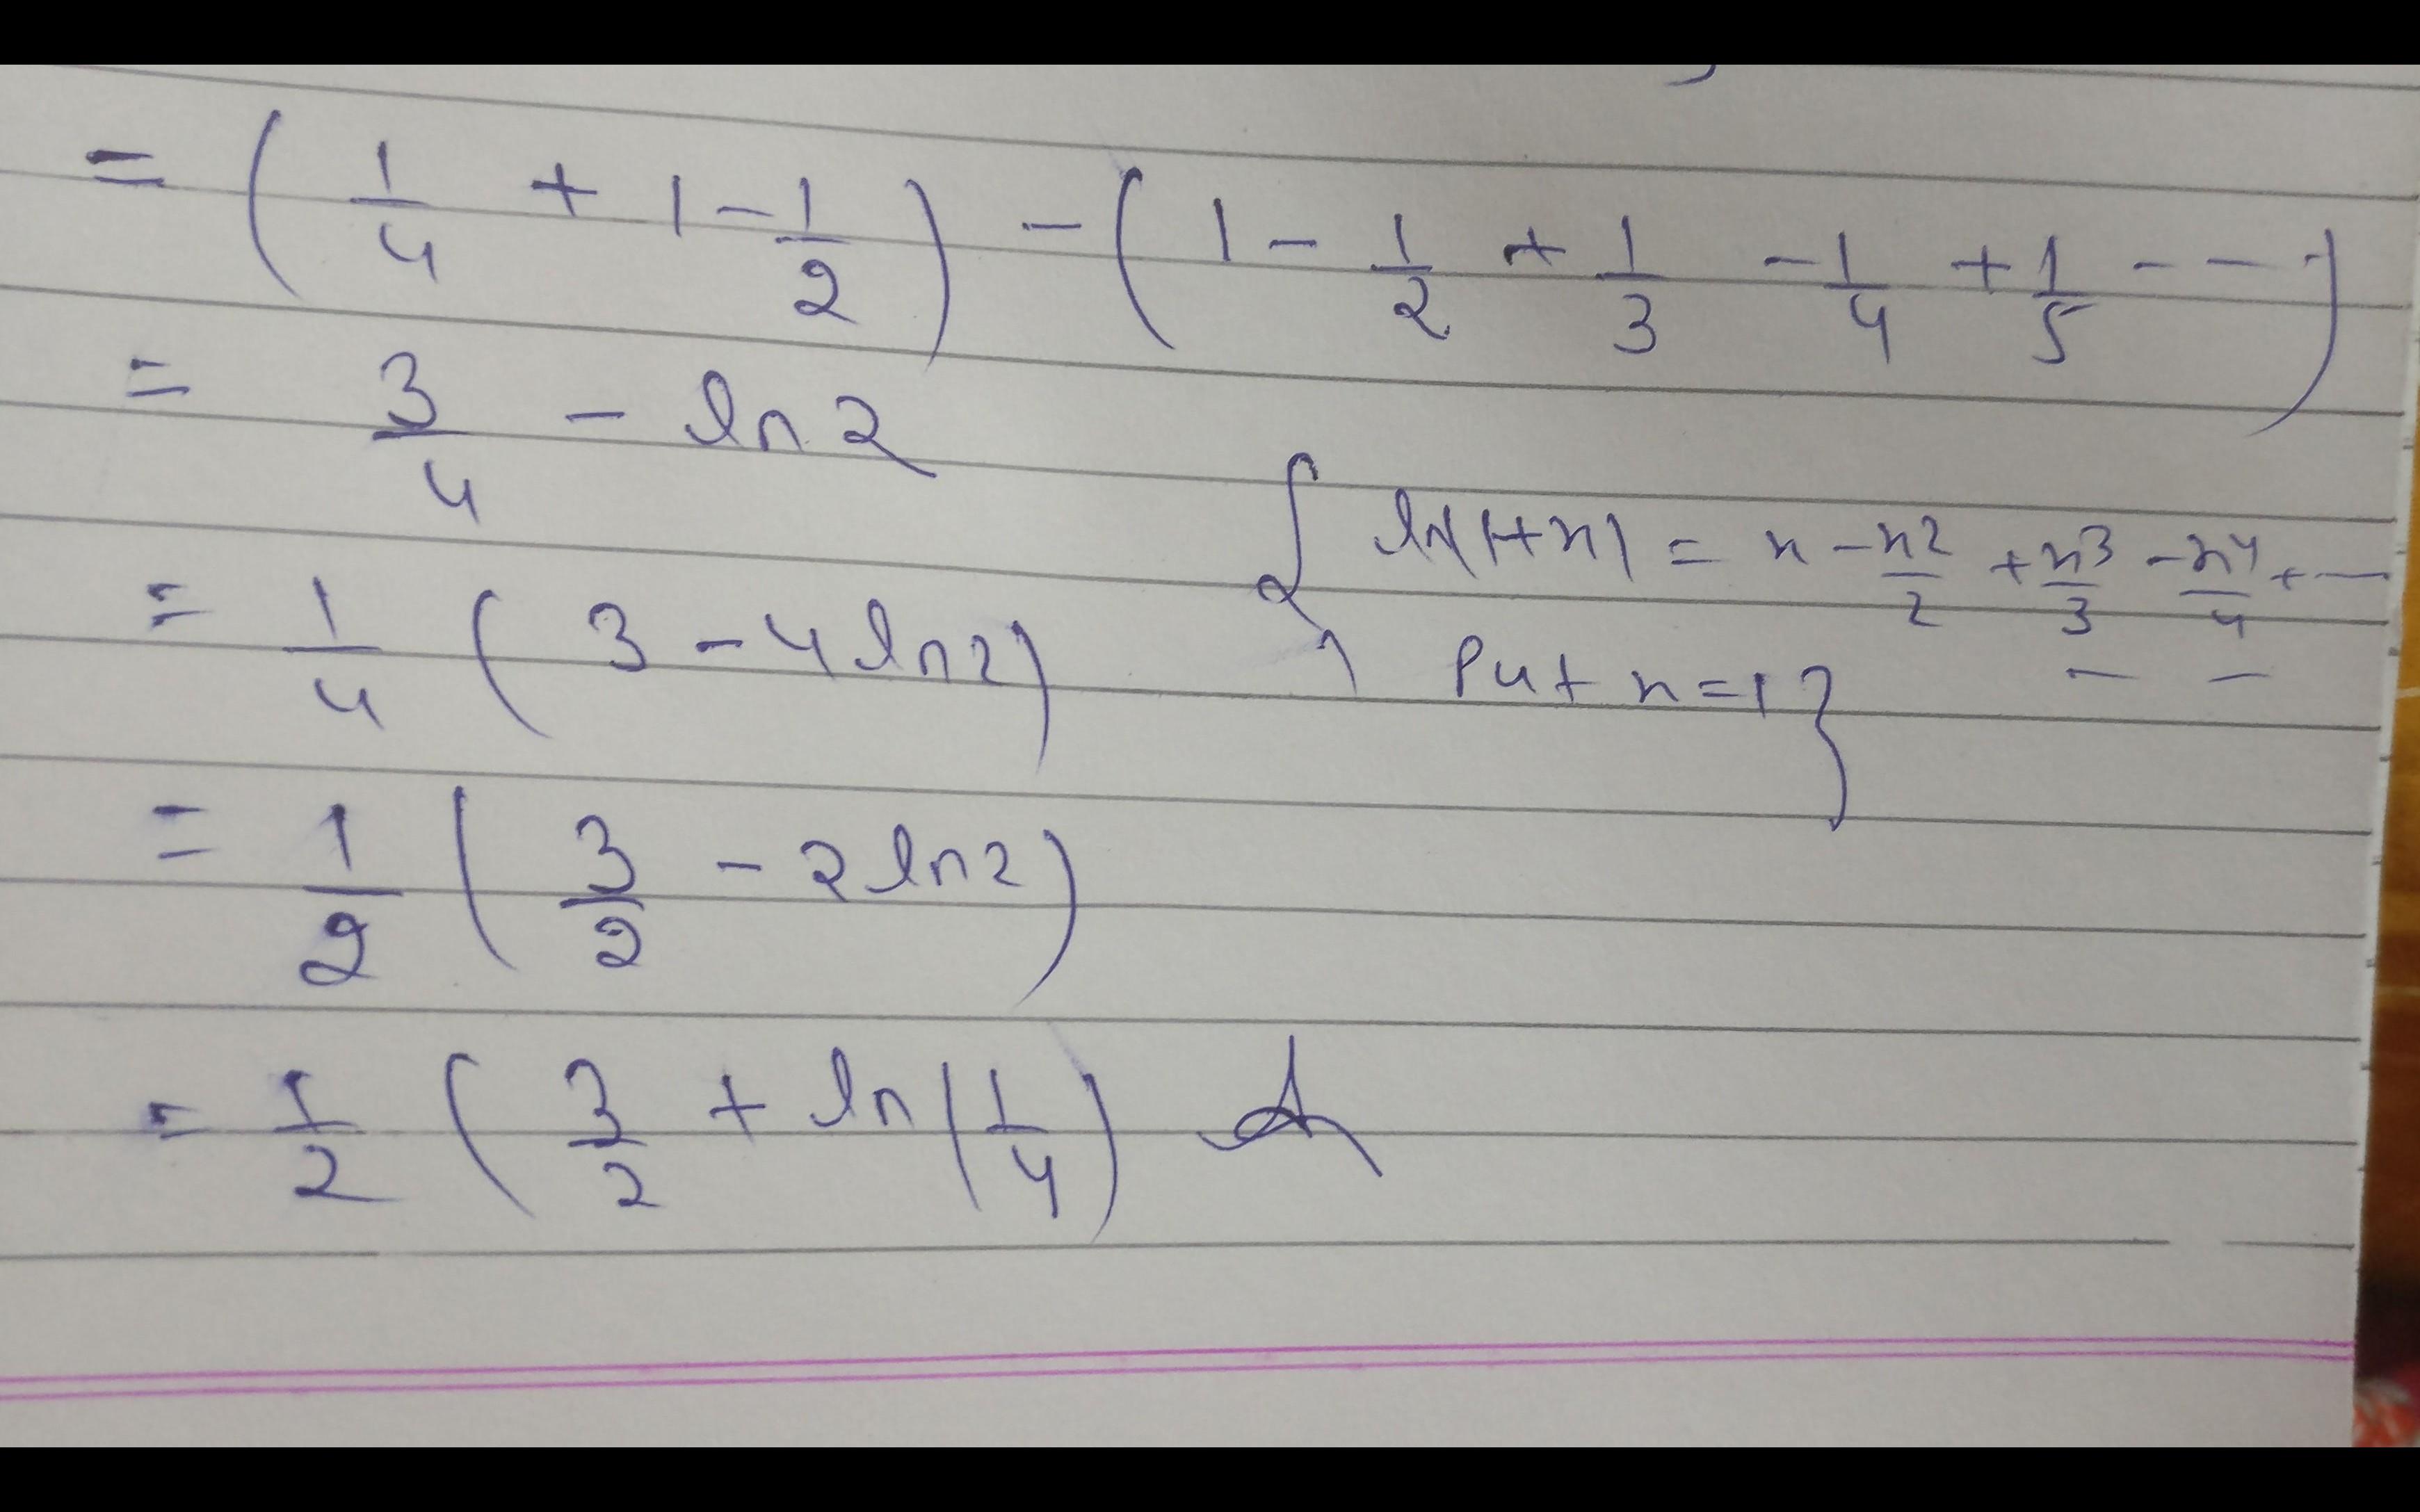 = ( 1/4 + 1 - 1/2 ) - ( 1 - 1/2 + 1/3 - 1/4 + 1/5 - - - )
= 3/4 - ln 2
{ ln(1+x) = x - x2/2 + x3/3 - x4/4 + - - -
= 1/4 ( 3 - 4 ln 2 )
Put x = 1 }
= 1/2 ( 3/2 - 2 ln 2 )
= 1/2 ( 3/2 + ln ( 1/4 )